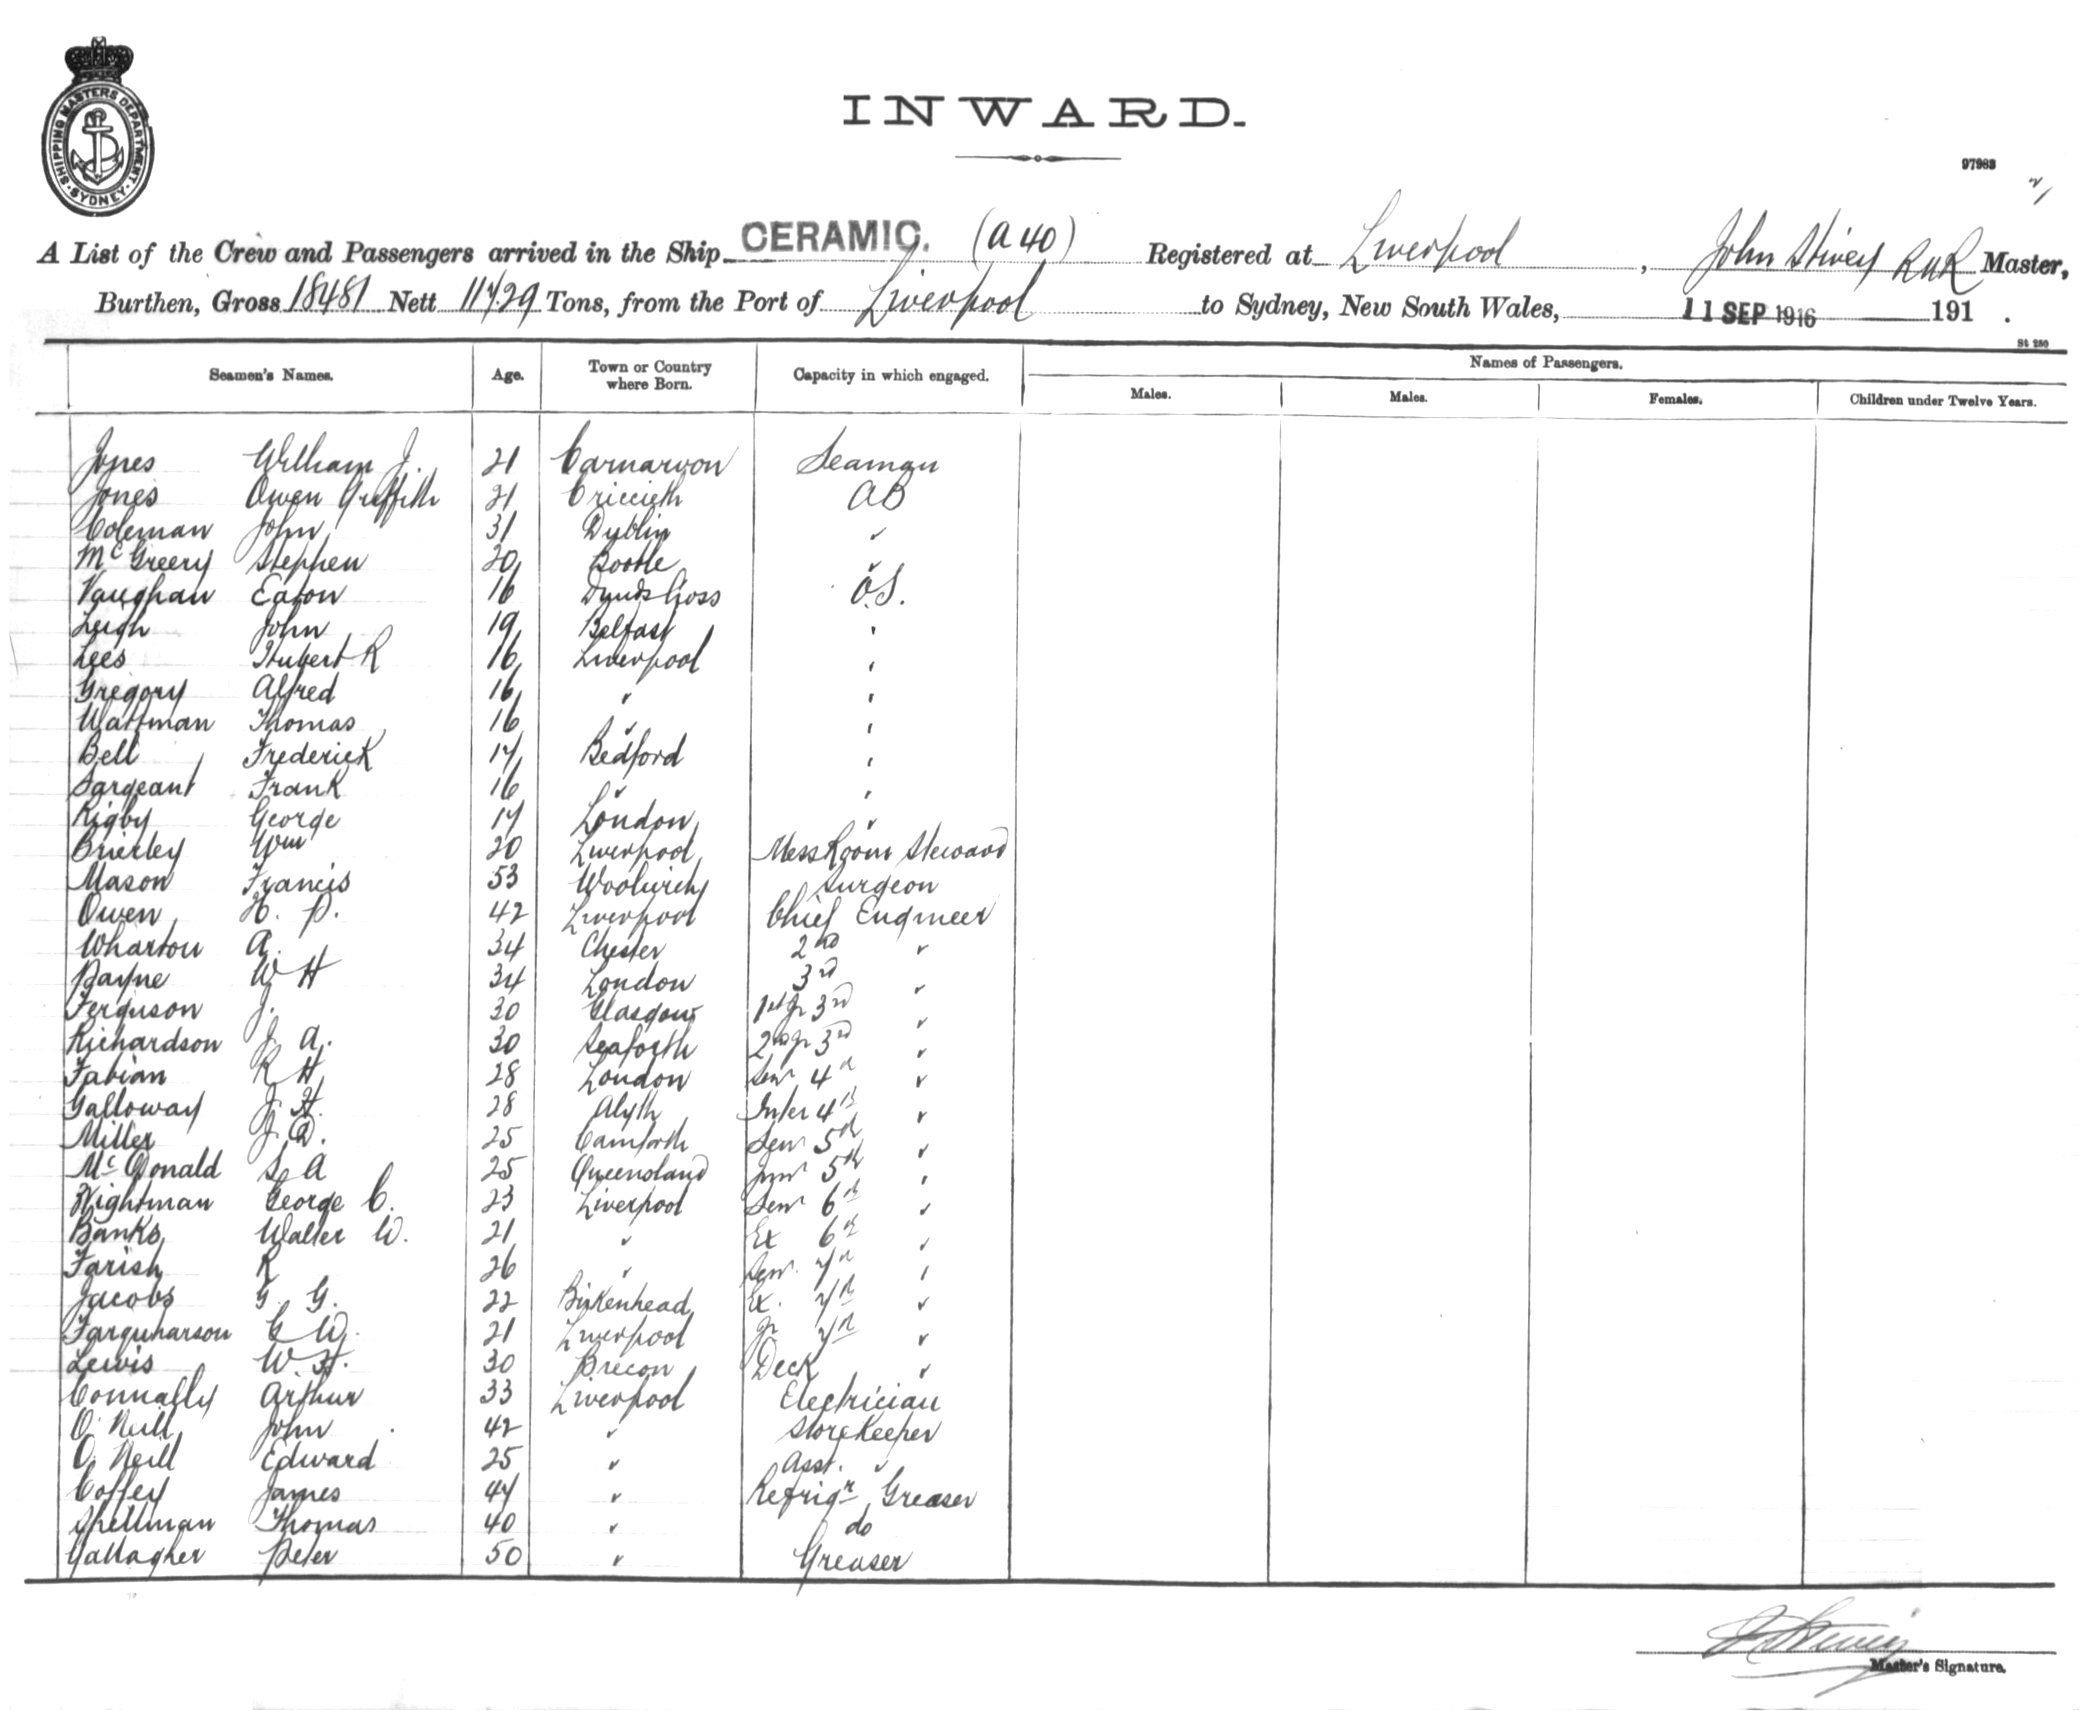 SHIPPING MASTERS DEPARTMENT. SYDNEY
INWARD.
97983
A List of the Crew and Passengers arrived in the Ship CERAMIC. (A 40) Registered at Liverpool, John Stivey RNR Master,
Burthen, Gross 18481 Nett 11729 Tons, from the Port of Liverpool to Sydney, New South Wales, 11 SEP 1916 191 .
St 280
Seamen's Names. Age. Town or Country where Born. Capacity in which engaged. Names of Passengers.
Males. Males. Females. Children under Twelve Years.
Jones William J. 21 Carnarvon Seaman
Jones Owen Griffith 21 Criccieth AB
Coleman John 31 Dublin "
McGreery Stephen 20 Bootle "
Vaughan Eaton 16 O.S.
Leigh John 19 Belfast "
Lees Hubert R 16 Liverpool "
Gregory Alfred 16 " "
Wattman Thomas 16 " "
Bell Frederick 17 Bedford "
Sargeant Frank 16 " "
Rigby George 17 London "
Brierley Wm 20 Liverpool Mess Room Steward
Mason Francis 53 Woolwich Surgeon
Owen H. P. 42 Liverpool Chief Engineer
Wharton A. 34 Chester 2nd "
Payne W H 34 London 3rd "
Ferguson J. 30 Glasgow 1st Jr 3rd "
Richardson J A. 30 Seaforth 2nd Jr 3rd "
Fabian R H 28 London Senr 4th "
Galloway J. H. 28 Alyth Inter 4th "
Miller J. D. 25 Carnforth Senr 5th "
McDonald S A 25 Queensland Junr 5th "
Wightman George C. 23 Liverpool Senr 6th "
Banks Walter W. 21 " Ex 6th "
Farish R 26 " Senr. 7th "
Jacobs G. G. 22 Birkenhead Ex. 7th "
Farquharson G W. 21 Liverpool Jr 7th "
Lewis W. H. 30 Brecon Deck "
Connally Arthur 33 Liverpool Electrician
O'Neill John 42 " Storekeeper
O'Neill Edward 25 " Asst. "
Coffey James 47 " Refrigr Greaser
Shellman Thomas 40 " do
Gallagher Peter 50 " Greaser
Master's Signature.